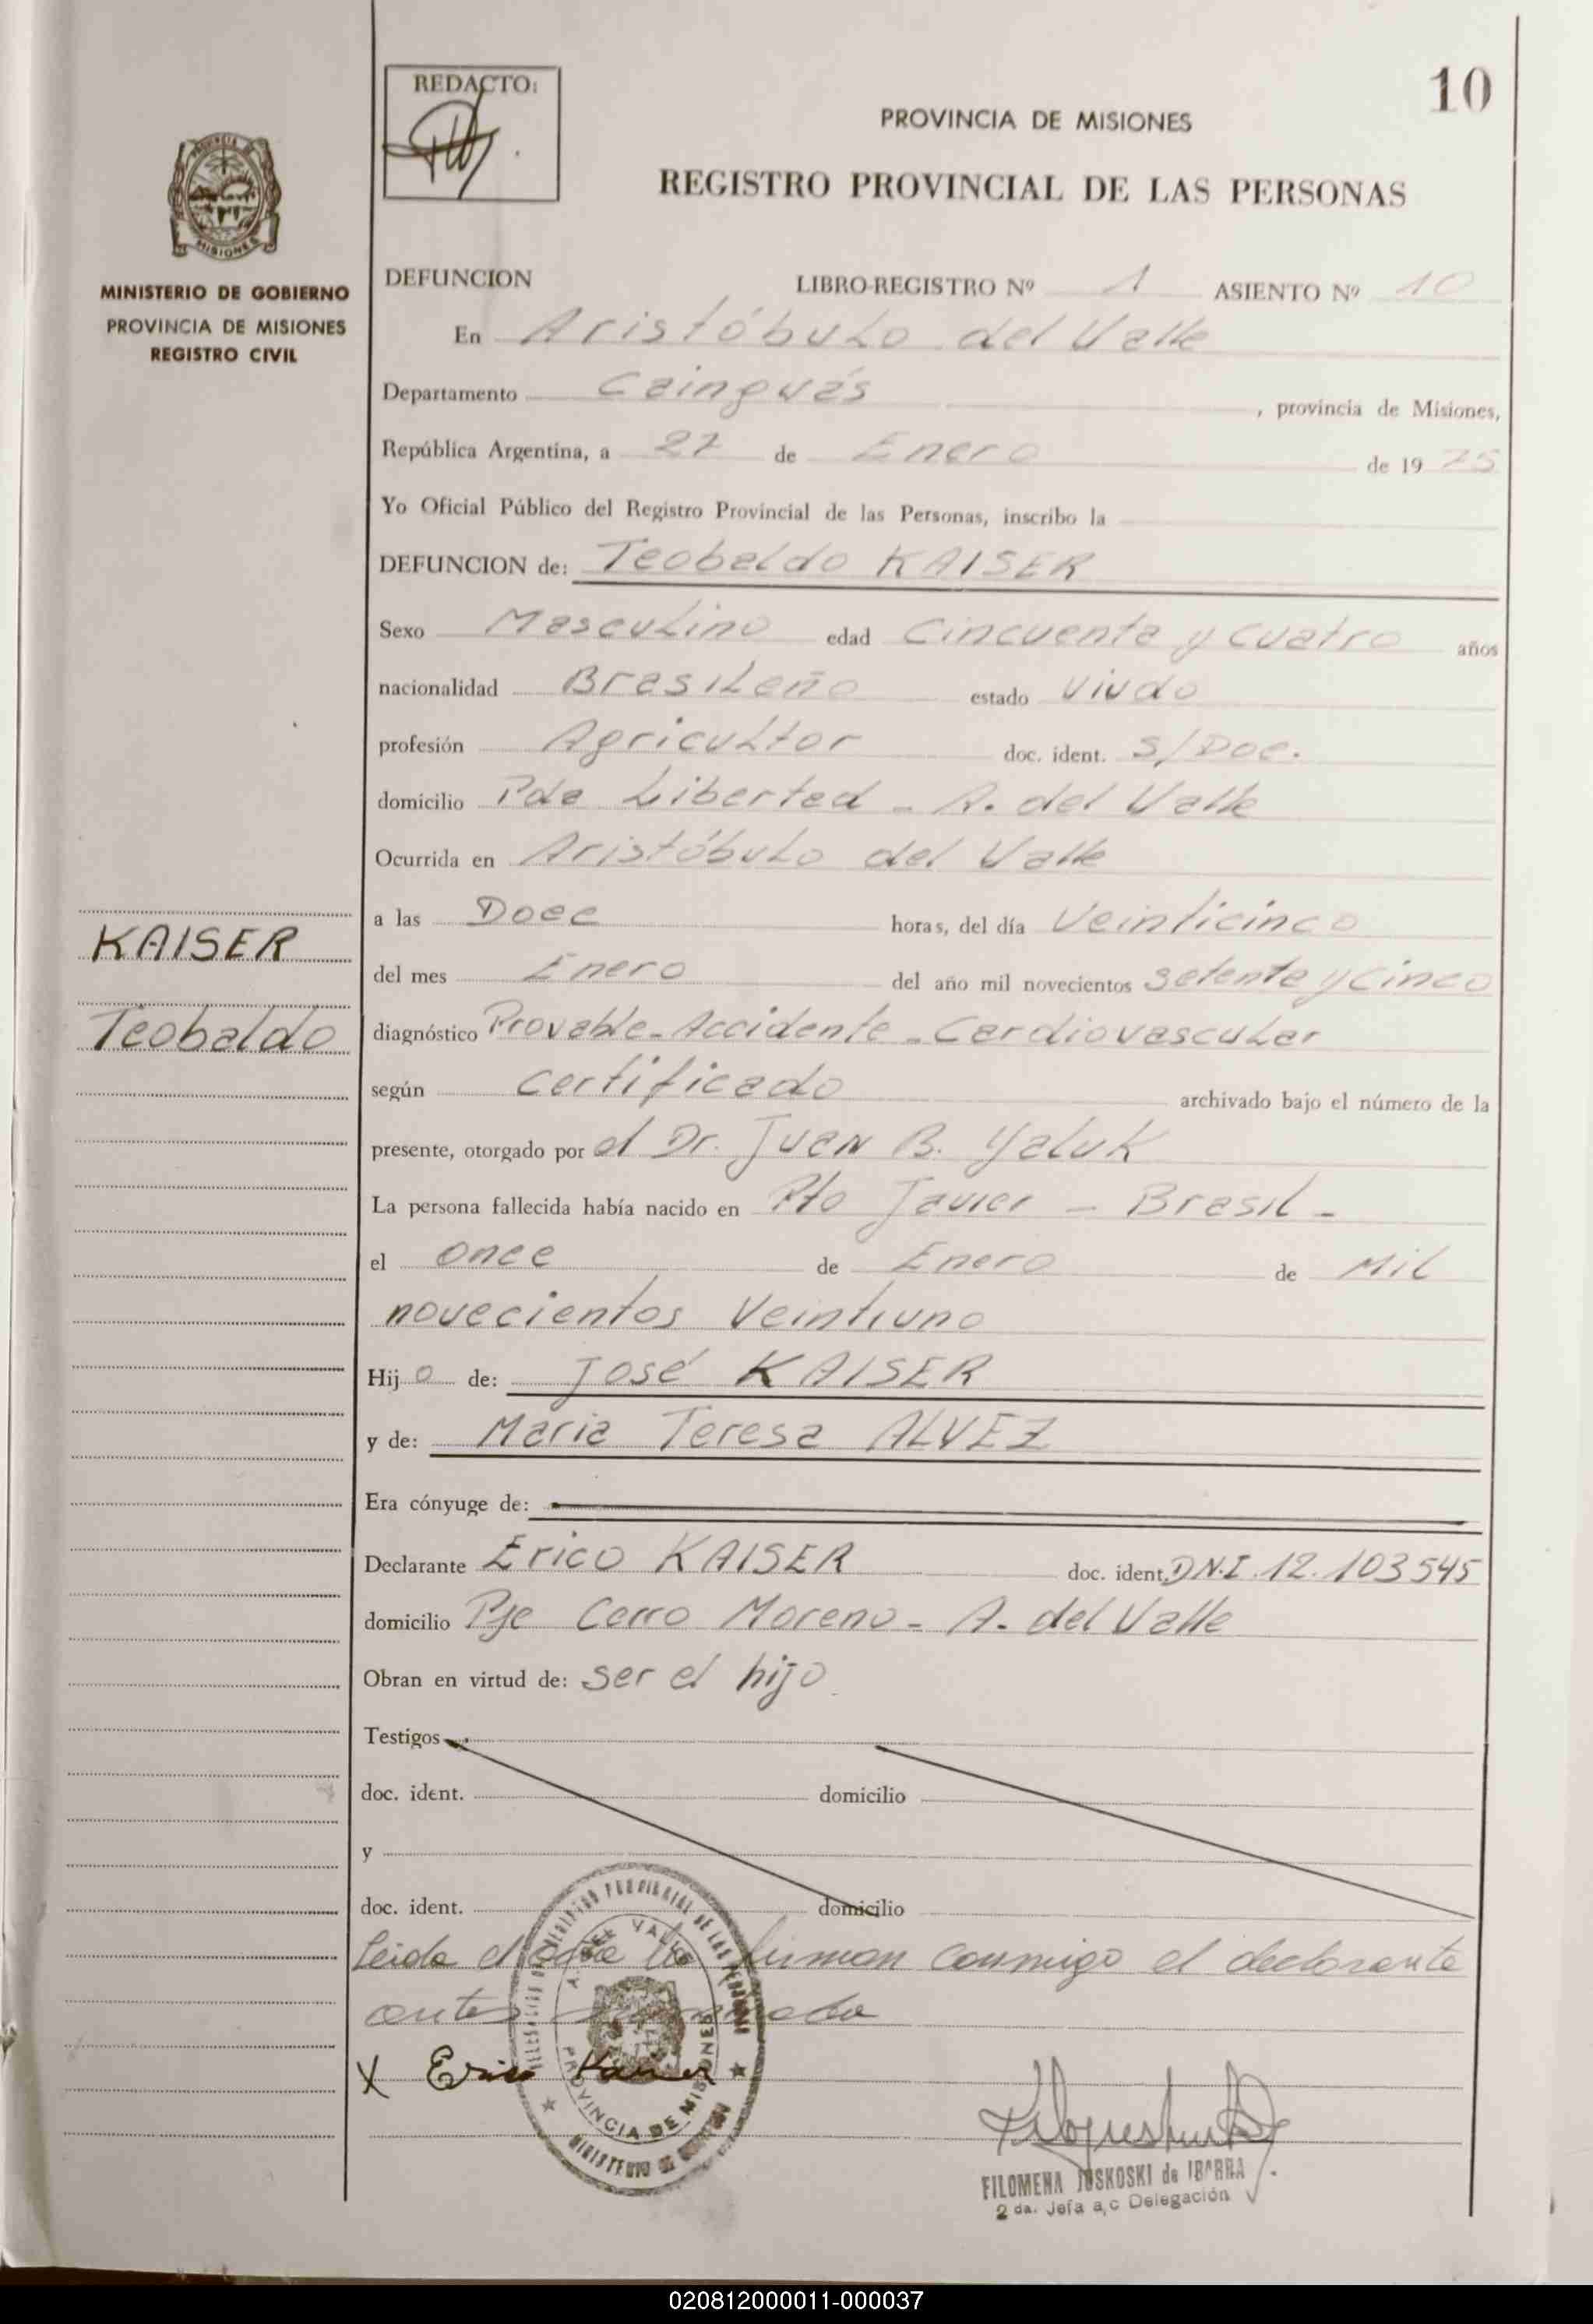 10
REDACTO:
PROVINCIA DE MISIONES
REGISTRO PROVINCIAL DE LAS PERSONAS
PROVINCIA DE
MISIONES
MINISTERIO DE GOBIERNO
PROVINCIA DE MISIONES
REGISTRO CIVIL
DEFUNCION LIBRO-REGISTRO Nº 1 ASIENTO Nº 10
En Aristóbulo del Valle
Departamento Cainguás, provincia de Misiones,
República Argentina, a 27 de Enero de 19 75
Yo Oficial Público del Registro Provincial de las Personas, inscribo la
DEFUNCION de: Teobaldo KAISER
Sexo Masculino edad Cincuenta y cuatro años
nacionalidad Brasileño estado Viudo
profesión Agricultor doc. ident. S/Doc.
domicilio Pda Libertad - A. del Valle
Ocurrida en Aristóbulo del Valle
a las Doce horas, del día Veinticinco
KAISER
del mes Enero del año mil novecientos setenta y cinco
Teobaldo
diagnóstico Provable - Accidente - Cardiovascular
según certificado archivado bajo el número de la
presente, otorgado por el Dr. Juan B. Yaluk
La persona fallecida había nacido en Pto Javier - Brasil -
el once de Enero de Mil
novecientos Veintiuno
Hijo de: José KAISER
y de: Maria Teresa ALVEZ
Era cónyuge de:
Declarante Erico KAISER doc. ident. D.N.I. 12.103545
domicilio Pje Cerro Moreno - A. del Valle
Obran en virtud de: ser el hijo
Testigos
doc. ident. domicilio
y
doc. ident. domicilio
Leida el acta la firman conmigo el declarante
antes
X Erico Kaiser
A. DEL VALLE
PROVINCIA DE MISIONES
FILOMENA JUSKOSKI de IBARRA
2 da. Jefa a,c Delegación
020812000011-000037